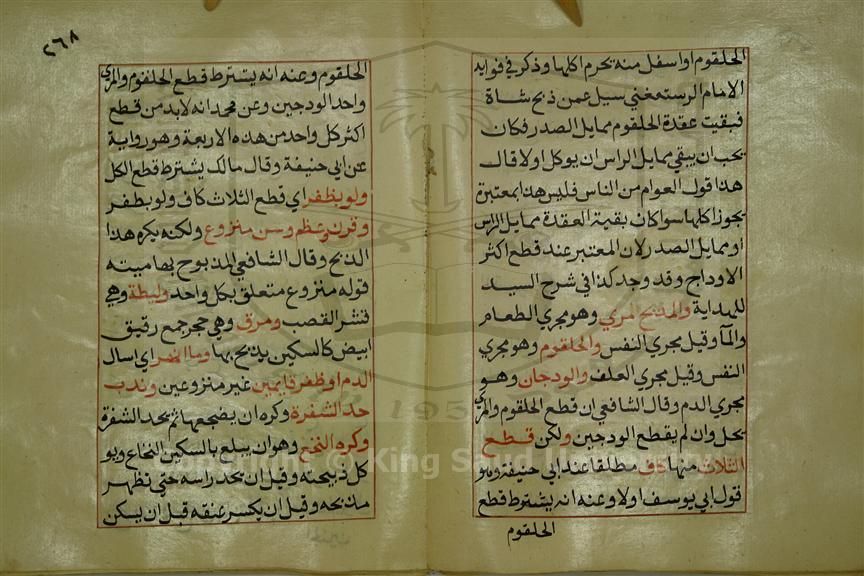 الحلقوم او اسفل منه يحرم اكلها وذكر في فوايد
الامام الرستمغني سيل عمن ذبح شاة
فبقيت عقدة الحلقوم ممايل الصدر فكان
يجب ان يبقي ممايل الراس ان يوكل او لا قال
هذا قول العوام من الناس فليس هذا بمعتبرة
يجوز اكلها سوا كان بقية العقدة ممايل الراس
او ممايل الصدر لان المعتبر عند قطع اكثر
الاوداج وقد وجد كذا في شرح السيد
للهداية والمذبح المري وهو مجري الطعام
والمآ وقيل مجري النفس والحلقوم وهو مجري
النفس وقيل مجري العلف والودجان وهو
مجري الدم وقال الشافعي ان قطع الحلقوم والمري
يحل وان لم يقطع الودجين ولكن قطع
الثلاث منها كاف مطلقا عند ابي حنيفة وهو
قول ابي يوسف اولا وعنه انه يشترط قطع
الحلقوم
٢٦٨
الحلقوم وعنه انه يشترط قطع الحلقوم والمري
واحد الودجين وعن محمد انه لا بد من قطع
اكثر كل واحد من هذه الاربعة وهو رواية
عن ابي حنيفة وقال مالك يشترط قطع الكل
ولو بظفر اي قطع الثلاث كاف ولو بظفر
وقرن وعظم وسن منزوع ولكنه يكره هذا
الذبح وقال الشافعي المذبوح بها ميته
قوله منزوع متعلق بكل واحد وليطة وهي
قشر القصب ومروة وهي حجر جمع رقيق
ابيض كالسكين يذبح بها وما انهر اي اسال
الدم او ظفر قايمين غير منزوعين وندب
حد الشفرة وكره ان يضجعها ثم يحد الشفرة
وكره النخع وهو ان يبلغ بالسكين النخاع ويو
كل ذبيحته وقيل ان يمد راسه حتي تظهر
مذبحه وقيل ان يكسر عنقه قبل ان يسكن